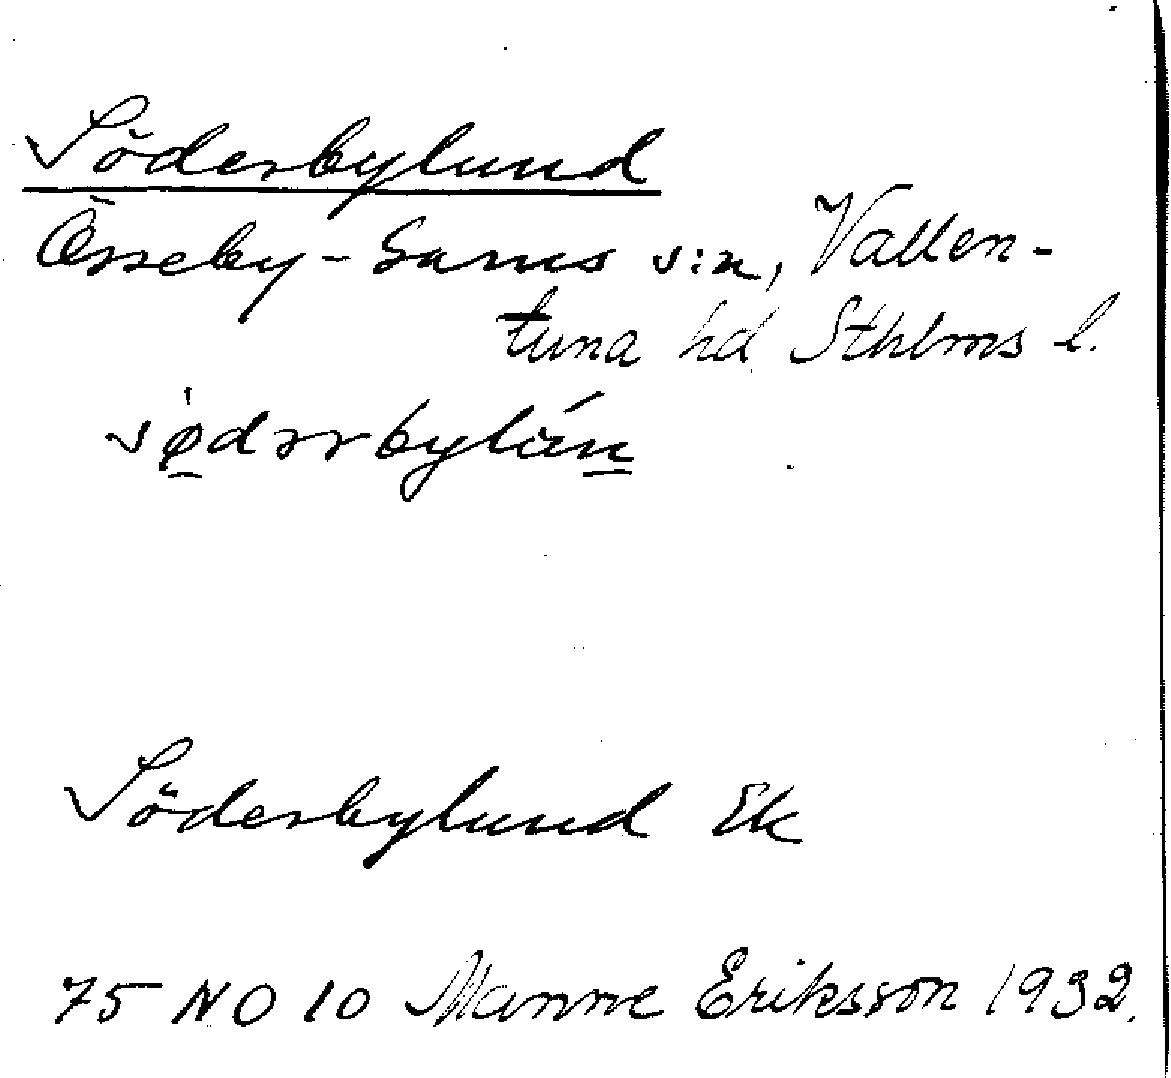 Söderbylund
Össeby-Garns s:n, Vallen-
tuna hd Sthlms l.
Söderbylund Ek
75 NO 10 Manne Eriksson 1932.